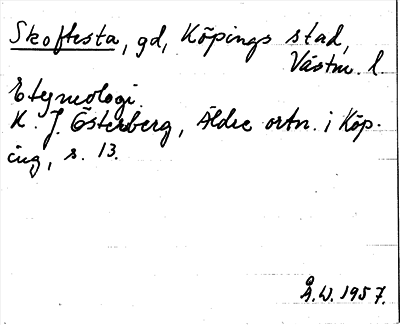 Skoftesta, gd, Köpings stad,
Västm. l
Etymologi.
K. J. Österberg, Äldre ortn. i Köp-
ing, s. 13.
Å.W. 1957.